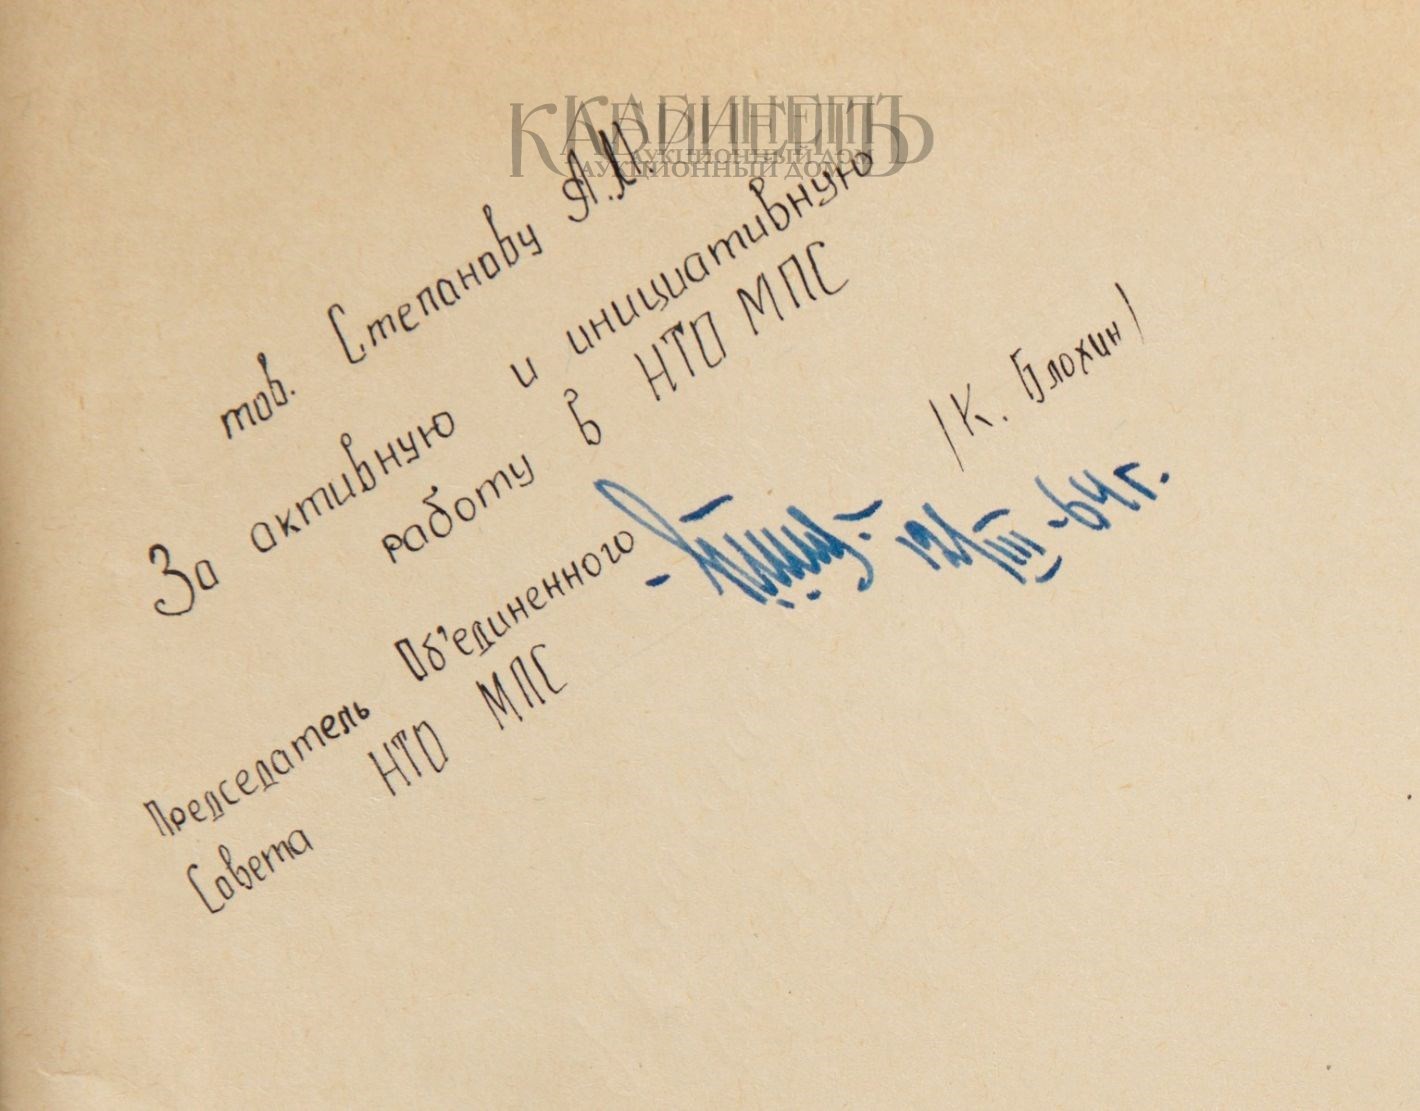 КАБИНЕТЪ
АУКЦИОННЫЙ ДОМ
тов. Степанову А.М.
За активную и инициативную
работу в НТО МПС
Председатель Об'единенного
Совета НТО МПС
/К. Блохин/
III-64г.